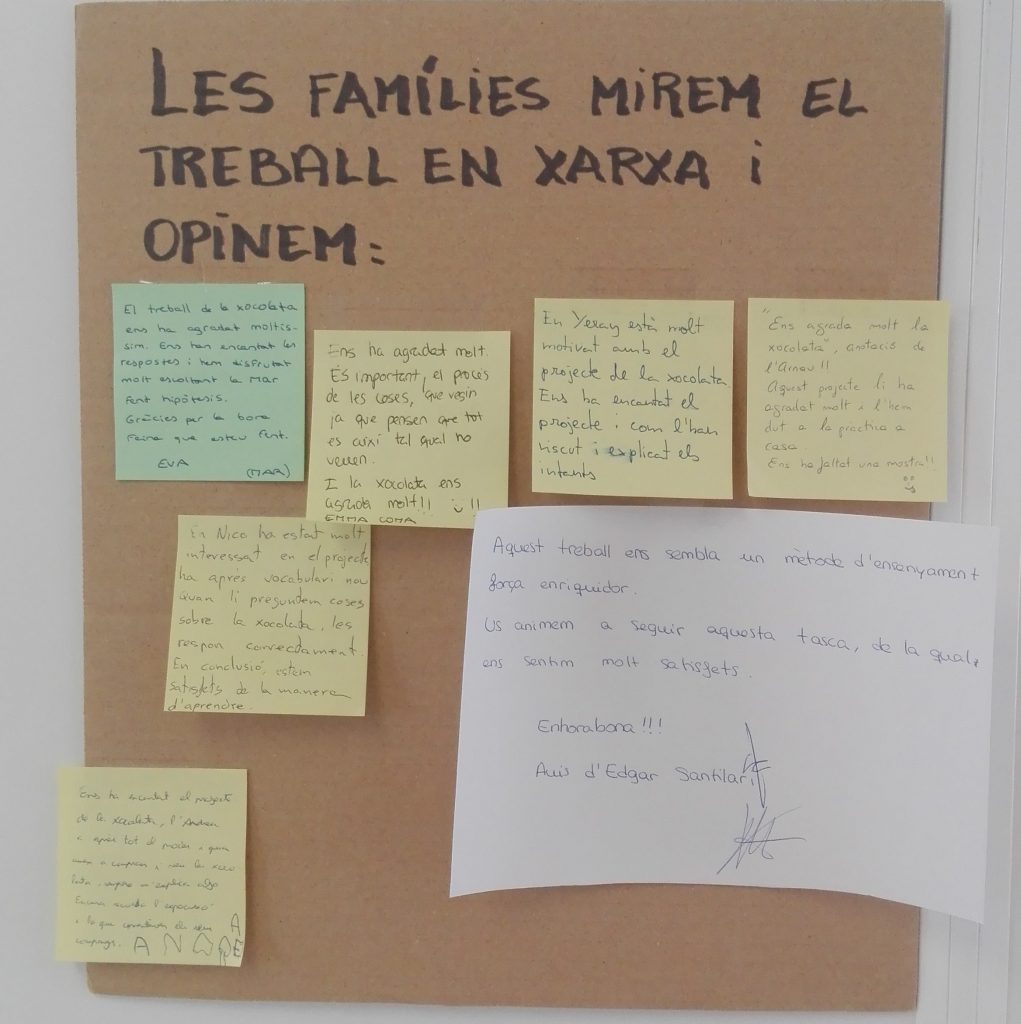 LES FAMÍLIES MIREM EL
TREBALL EN XARXA i
OPINEM:
El treball de la xocolata
ens ha agradat moltís-
sim. Ens han encantat les
respostes i hem disfrutat
molt escoltant la Mar
fent hipòtesis.
Gràcies per la bona
feina que esteu fent.
EVA (MAR)
Ens ha agradat molt.
És important, el procés
de les coses, que vegin
ja que pensen que tot
es així tal qual ho
veuen.
I la xocolata ens
agrada molt!! !!
EMMA COMA
En Yeray està molt
motivat amb el
projecte de la xocolata.
Ens ha encantat el
projecte i com l'han
viscut i explicat els
infants
"Ens agrada molt la
xocolata", anotació de
l'Arnau!!
Aquest projecte li ha
agradat molt i l'hem
dut a la pràctica a
casa
Ens ha faltat una mostra!!
En Nico ha estat molt
interessat en el projecte
ha après vocabulari nou
Quan li preguntem coses
sobre la xocolata, les
respon correctament.
En conclusió, estem
satisfets de la manera
d'aprendre.
Aquest treball ens sembla un mètode d'ensenyament
força enriquidor.
Us animem a seguir aquesta tasca, de la qual,
ens sentim molt satisfets.
Enhorabona!!!
Avis d'Edgar Santilari
Ens ha encantat el projecte
de la xocolata, l'Andrea
a après tot el procés i quan
anem a comprar i veu la xoco-
lata, sempre m'explica algo
Encara recorda l'exposició
i lo que els seus
companys. ANDREA